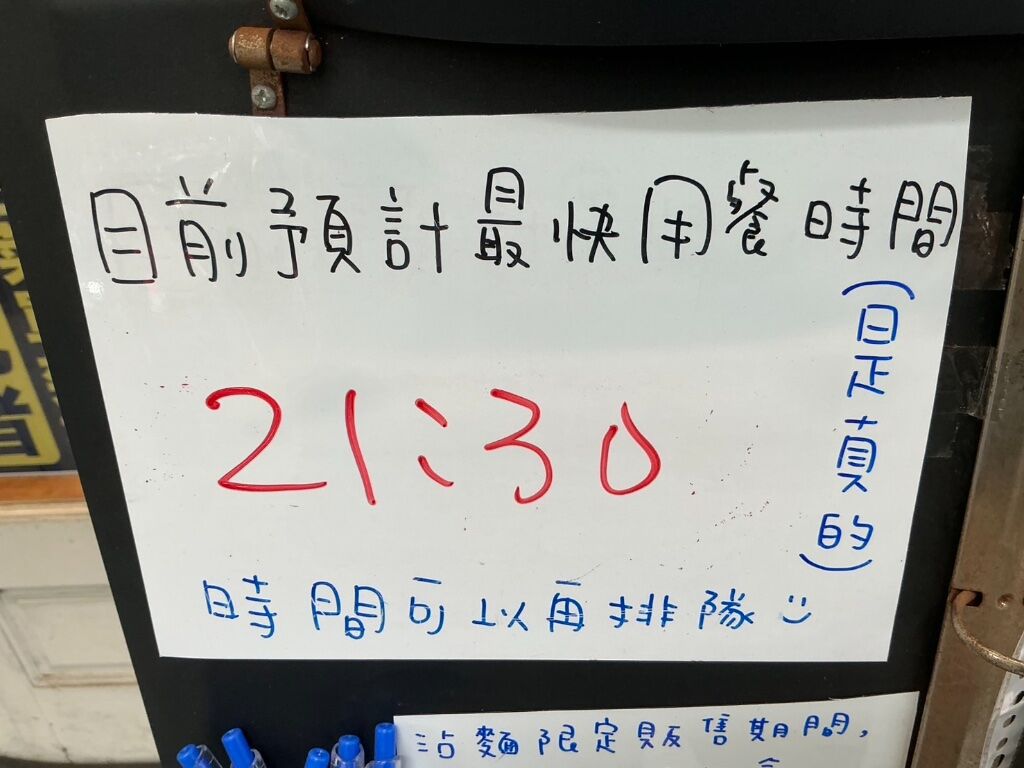 目前預計最快用餐時間
(是真的)
21:30
時間可以再排隊:)
沾麵限定販售期間,